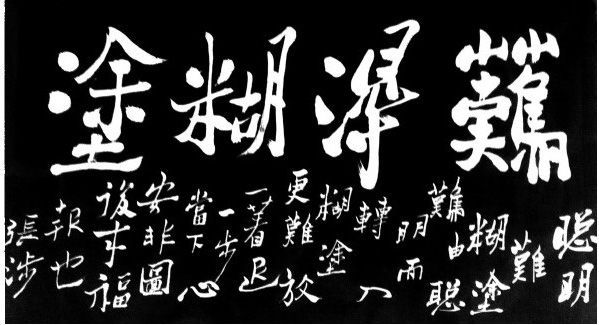 難得糊塗
聰明
難
糊塗
難由聰
明而
轉入
糊塗
更難放
一著退
一步
當下心
安非圖
後来福
報也
張涉